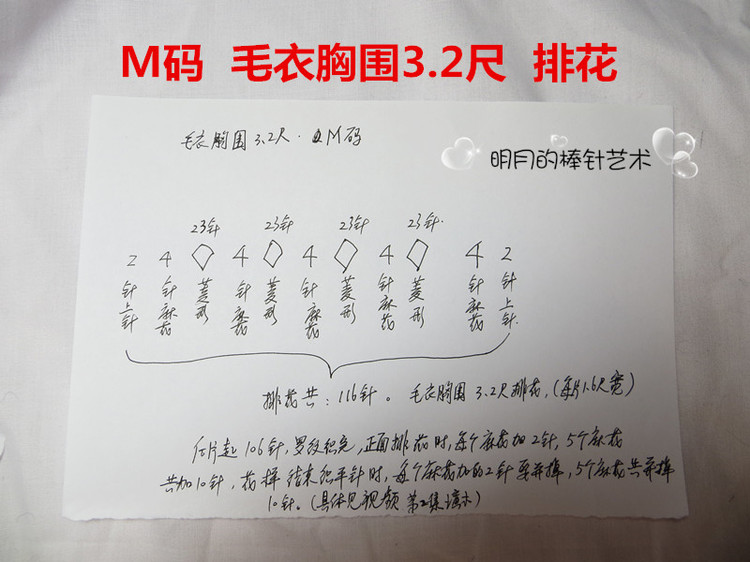 M码 毛衣胸围3.2尺 排花
毛衣胸围3.2尺. M码
明月的棒针艺术
23针 23针 23针 23针.
2 4 ◇ 4 ◇ 4 ◇ 4 ◇ 4 2
针上针 针麻花 菱形 针麻花 菱形 针麻花 菱形 针麻花 菱形 针麻花 针上针.
排花共: 116针。 毛衣胸围 3.2尺排花, (每片1.6尺宽)
片起106针, 罗纹织完, 正面排花时, 每个麻花加2针, 5个麻花
共加10针, 花样结束织平针时, 每个麻花加的2针要并掉, 5个麻花共并掉
10针。(具体见视频 第2集演示)